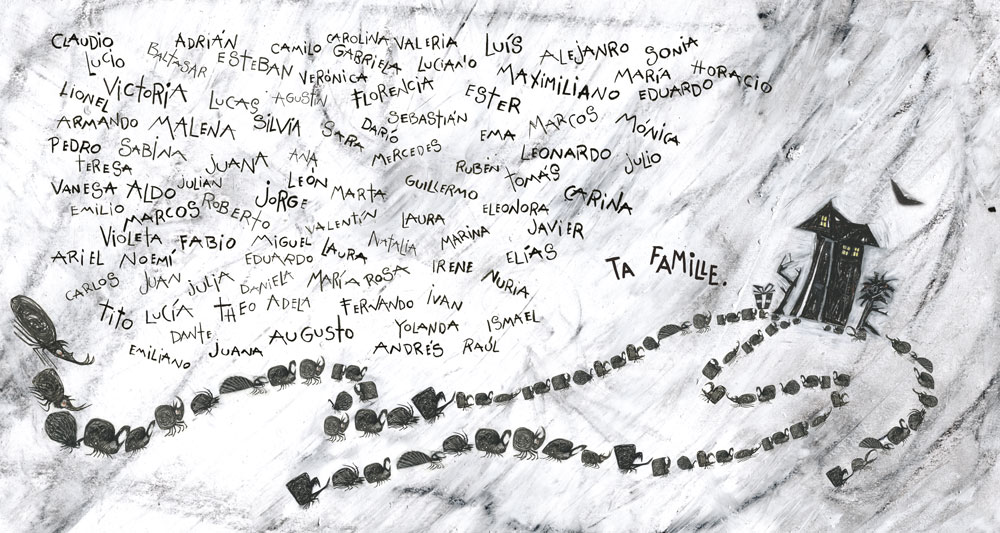 CLAUDIO ADRIÁN CAMILO CAROLINA VALERIA LUÍS ALEJANRO SONIA
LUCIO BALTASAR ESTEBAN VERÓNICA GABRIELA LUCIANO MAXIMILIANO MARÍA HORACIO
LIONEL VICTORIA LUCAS AGUSTÍN FLORENCIA ESTER EDUARDO
ARMANDO MALENA SILVIA SARA DARIÓ SEBASTIÁN EMA MARCOS MÓNICA
PEDRO SABINA JUANA ANA MERCEDES RUBÉN LEONARDO JULIO
TERESA JULIÁN LEÓN MARTA GUILLERMO TOMÁS CARINA
VANESA ALDO JORGE
EMILIO MARCOS ROBERTO VALENTÍN LAURA ELEONORA
VIOLETA FABIO MIGUEL LAURA NATALIA MARINA JAVIER
ARIEL NOEMÍ EDUARDO IRENE ELÍAS
CARLOS JUAN JULIA DANIELA MARÍA ROSA NURIA
TITO LUCÍA THEO ADELA FERNANDO IVAN
DANTE AUGUSTO YOLANDA ISMAEL
EMILIANO JUANA ANDRÉS RAÚL
TA FAMILLE.